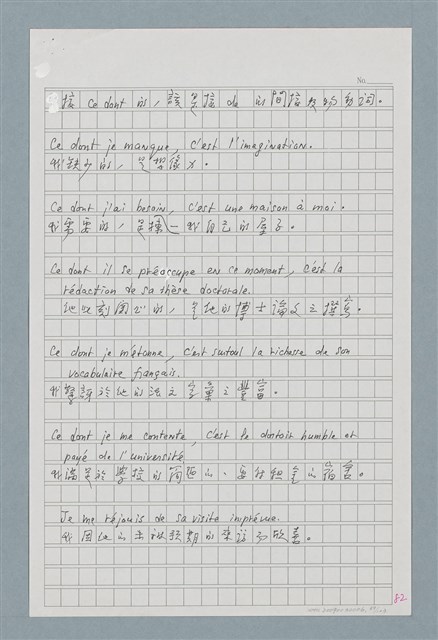 No.
接 ce dont 的，該是接 de 的間接及物動詞。
Ce dont je manque, c'est l'imagination.
我缺少的，是想像力。
Ce dont j'ai besoin, c'est une maison à moi.
我需要的，是擁一我自己的屋子。
Ce dont il se préoccupe en ce moment, c'est la
rédaction de sa thèse doctorale.
他此刻關心的，是他的博士論文之撰寫。
Ce dont je m'étonne, c'est surtout la richesse de son
vocabulaire français.
我驚訝於他的法文字彙之豐富。
Ce dont je me contente, c'est le dortoir humble et
payé de l'université
我滿足於學校的簡陋的、要付租金的宿舍。
Je me réjouis de sa visite imprévue.
我因他的未被預期的來訪而欣喜。
82